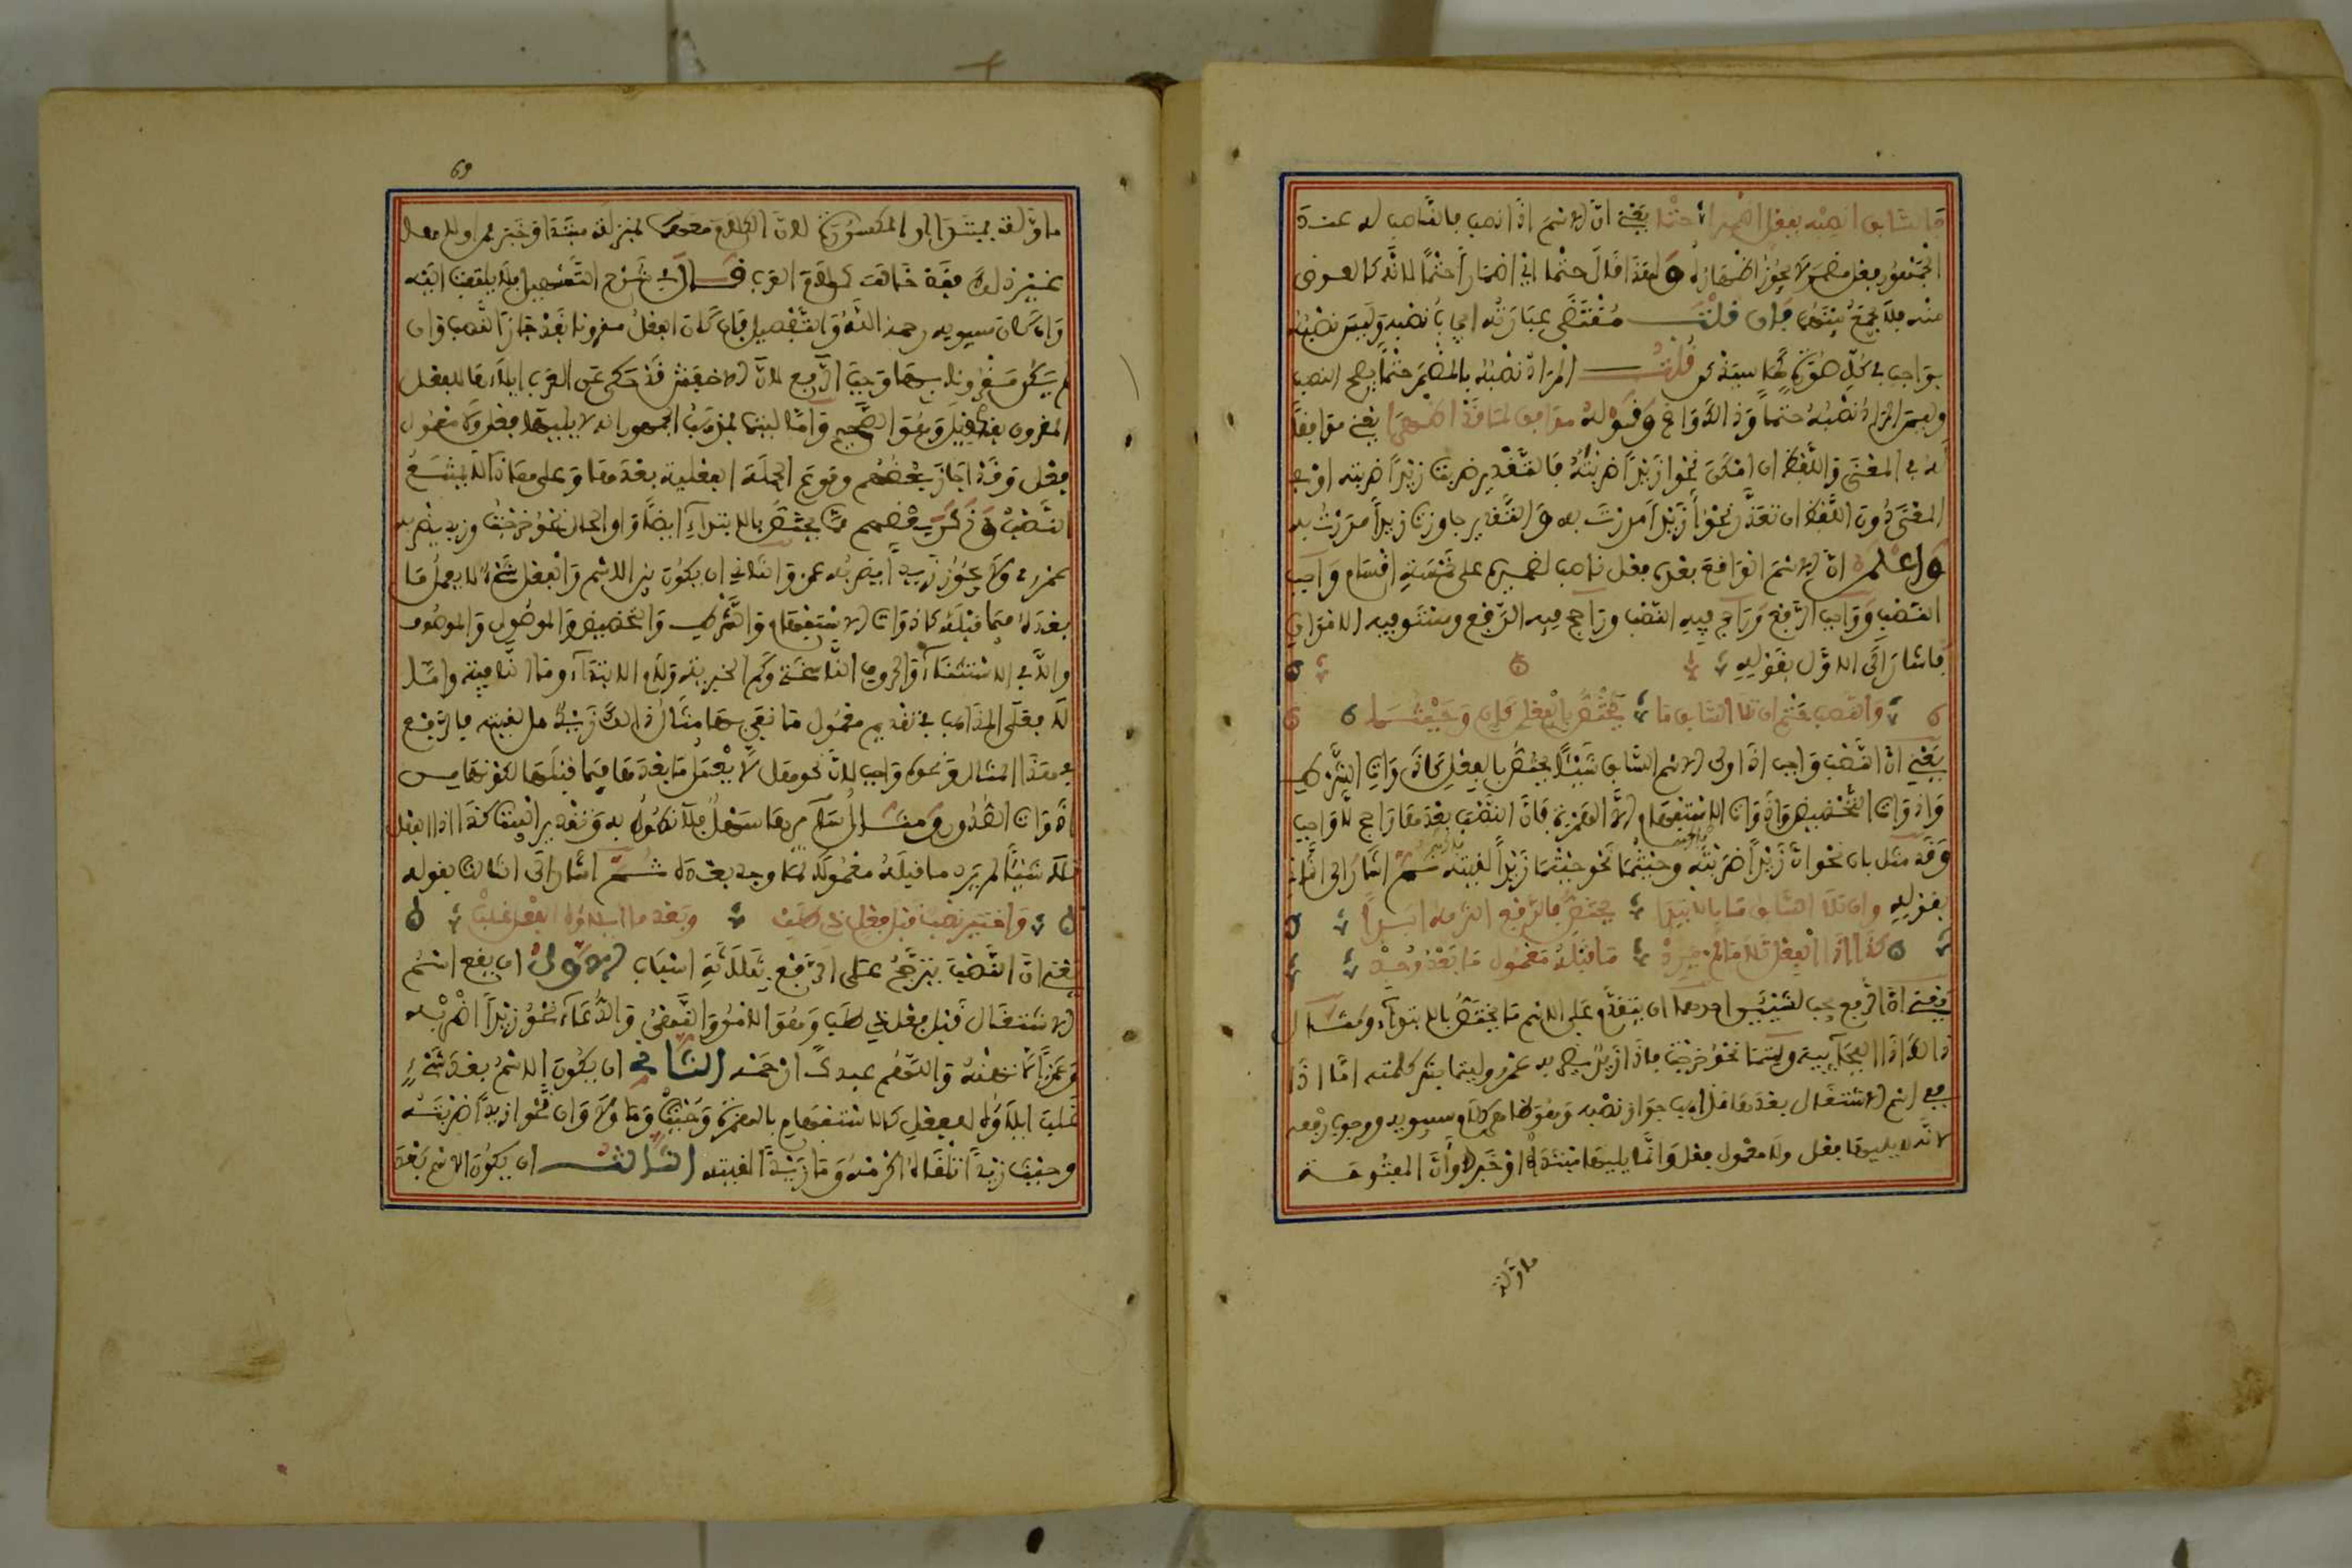 فالسابق انصبه بفعل اضمرا حتما يعني ان الاسم اذا نصب فالناصب له عند
الجمهور فعل مضمر لا يجوز اظهاره ولهذا قال حتما اي اضمارا حتما لانه كالعوض
منه فلا يجمع بينهما فان قلت مقتضى عبارته ايجاب نصبه وليس نصبه
بواجب في كل صورة كما سيذكر قلت المراد نصبه بالمضمر حتما يصح النصب
وليس المراد نصبه حتما وقوله موافق لما قد اظهرا يعني موافقا
له في المعنى واللفظ ان امكن نحو ازيدا ضربته فالتقدير ضربت زيدا ضربته او في
المعنى دون اللفظ ان تعذر نحو ازيدا مررت به والتقدير جاوزت زيدا مررت به
واعلم ان الاسم الواقع بعده فعل ناصب لضميره على خمسة اقسام واجب
النصب وواجب الرفع وراجح فيه النصب وراجح فيه الرفع ومستو فيه الامران
فاشار الى الاول بقوله
والنصب حتم ان تلا السابق ما يختص بالفعل كان وحيثما
يعني ان النصب واجب اذا ولي الاسم السابق شيئا يختص بالفعل كادوات الشرط
وادوات التحضيض وادوات الاستفهام الا الهمزة فان النصب بعدها راجح لا واجب
وقد مثل بان نحو ان زيدا ضربته وحيثما نحو حيثما زيدا لقيته ثم اشار الى الثاني
بقوله وان تلا السابق ما بالابتدا يختص فالرفع التزمه ابدا
كذا اذا الفعل تلا ما لم يرد ما قبله معمول ما بعد وجد
يعني ان الرفع يجب لشيئين احدهما ان يتقدم على الاسم ما يختص بالابتداء ومثال
ذلك اذا الفجائية وليتما نحو خرجت فاذا زيد يضربه عمرو وليتما بشر كلمته اما اذا
مع اسم الاشتغال بعدها جواز نصبه وهو ظاهر كلام سيبويه ووجوب رفعه
لانه لا يليها فعل ولا معمول فعل وانما يليها مبتدا او خبر او ان المفتوحة
ماولة
69
ماولة بمبتدا او المكسورة لان الكلام معها بمنزلة مبتدا وخبر
غير ذلك فقد خالف كلام العرب قال في شرح التسهيل فلا يلتفت اليه
وان كان سيبويه رحمه الله والتفصيل فان كان الفعل مقرونا بقد جاز النصب وان
لم يكن مقرونا بها وجب الرفع لان الاخفش قد حكى عن العرب ايلاءها الفعل
المقرون بقد قيل وهو الصحيح واما ليتما فمذهب الجمهور انه لا يليها فعل ولا معمول
فعل وقد اجاز بعضهم وقوع الجملة الفعلية بعدها وعلى هذا لا يمتنع
النصب وذكر بعضهم مما يختص بالابتداء ايضا واو الحال نحو خرجت وزيد يضربه
عمرو ولا يجوز زيدا يضربه عمرو والثاني ان يكون بين الاسم والفعل شيء لا يعمل ما
بعده فيما قبله كادوات الاستفهام والشرط والتحضيض والموصول والموصوف
والا في الاستثناء والحروف الناسخة وكم الخبرية ولام الابتداء وما النافية واما
لا فعلى المذاهب في تقديم معمول ما نفي بها مثال ذلك زيد هل لقيته فالرفع
في هذا المثال ونحوه واجب لان نحو هل لا يعمل ما بعدها فيما قبلها لكونها من
ادوات الصدور ومثال
تلا شيئا لم يرد ما قبله معمولا لما وجد بعده ثم اشار الى الثالث بقوله
واختير نصب قبل فعل ذي طلب وبعد ما ايلاؤه الفعل غلب
يعني ان النصب يترجح على الرفع بثلاثة اسباب الاول ان يقع اسم
الاشتغال قبل فعل ذي طلب وهو الامر والنهي والدعاء نحو زيدا اضربه
وعمرا لا تهنه واللهم عبدك ارحمه الثاني ان يكون الاسم بعد شيء
غلب ايلاؤه للفعل كالاستفهام بالهمزة وحيث وما ولا وان نحو ازيدا ضربته
وحيث زيدا تلقاه اكرمه وما زيدا لقيته الثالث ان يكون الاسم بعد